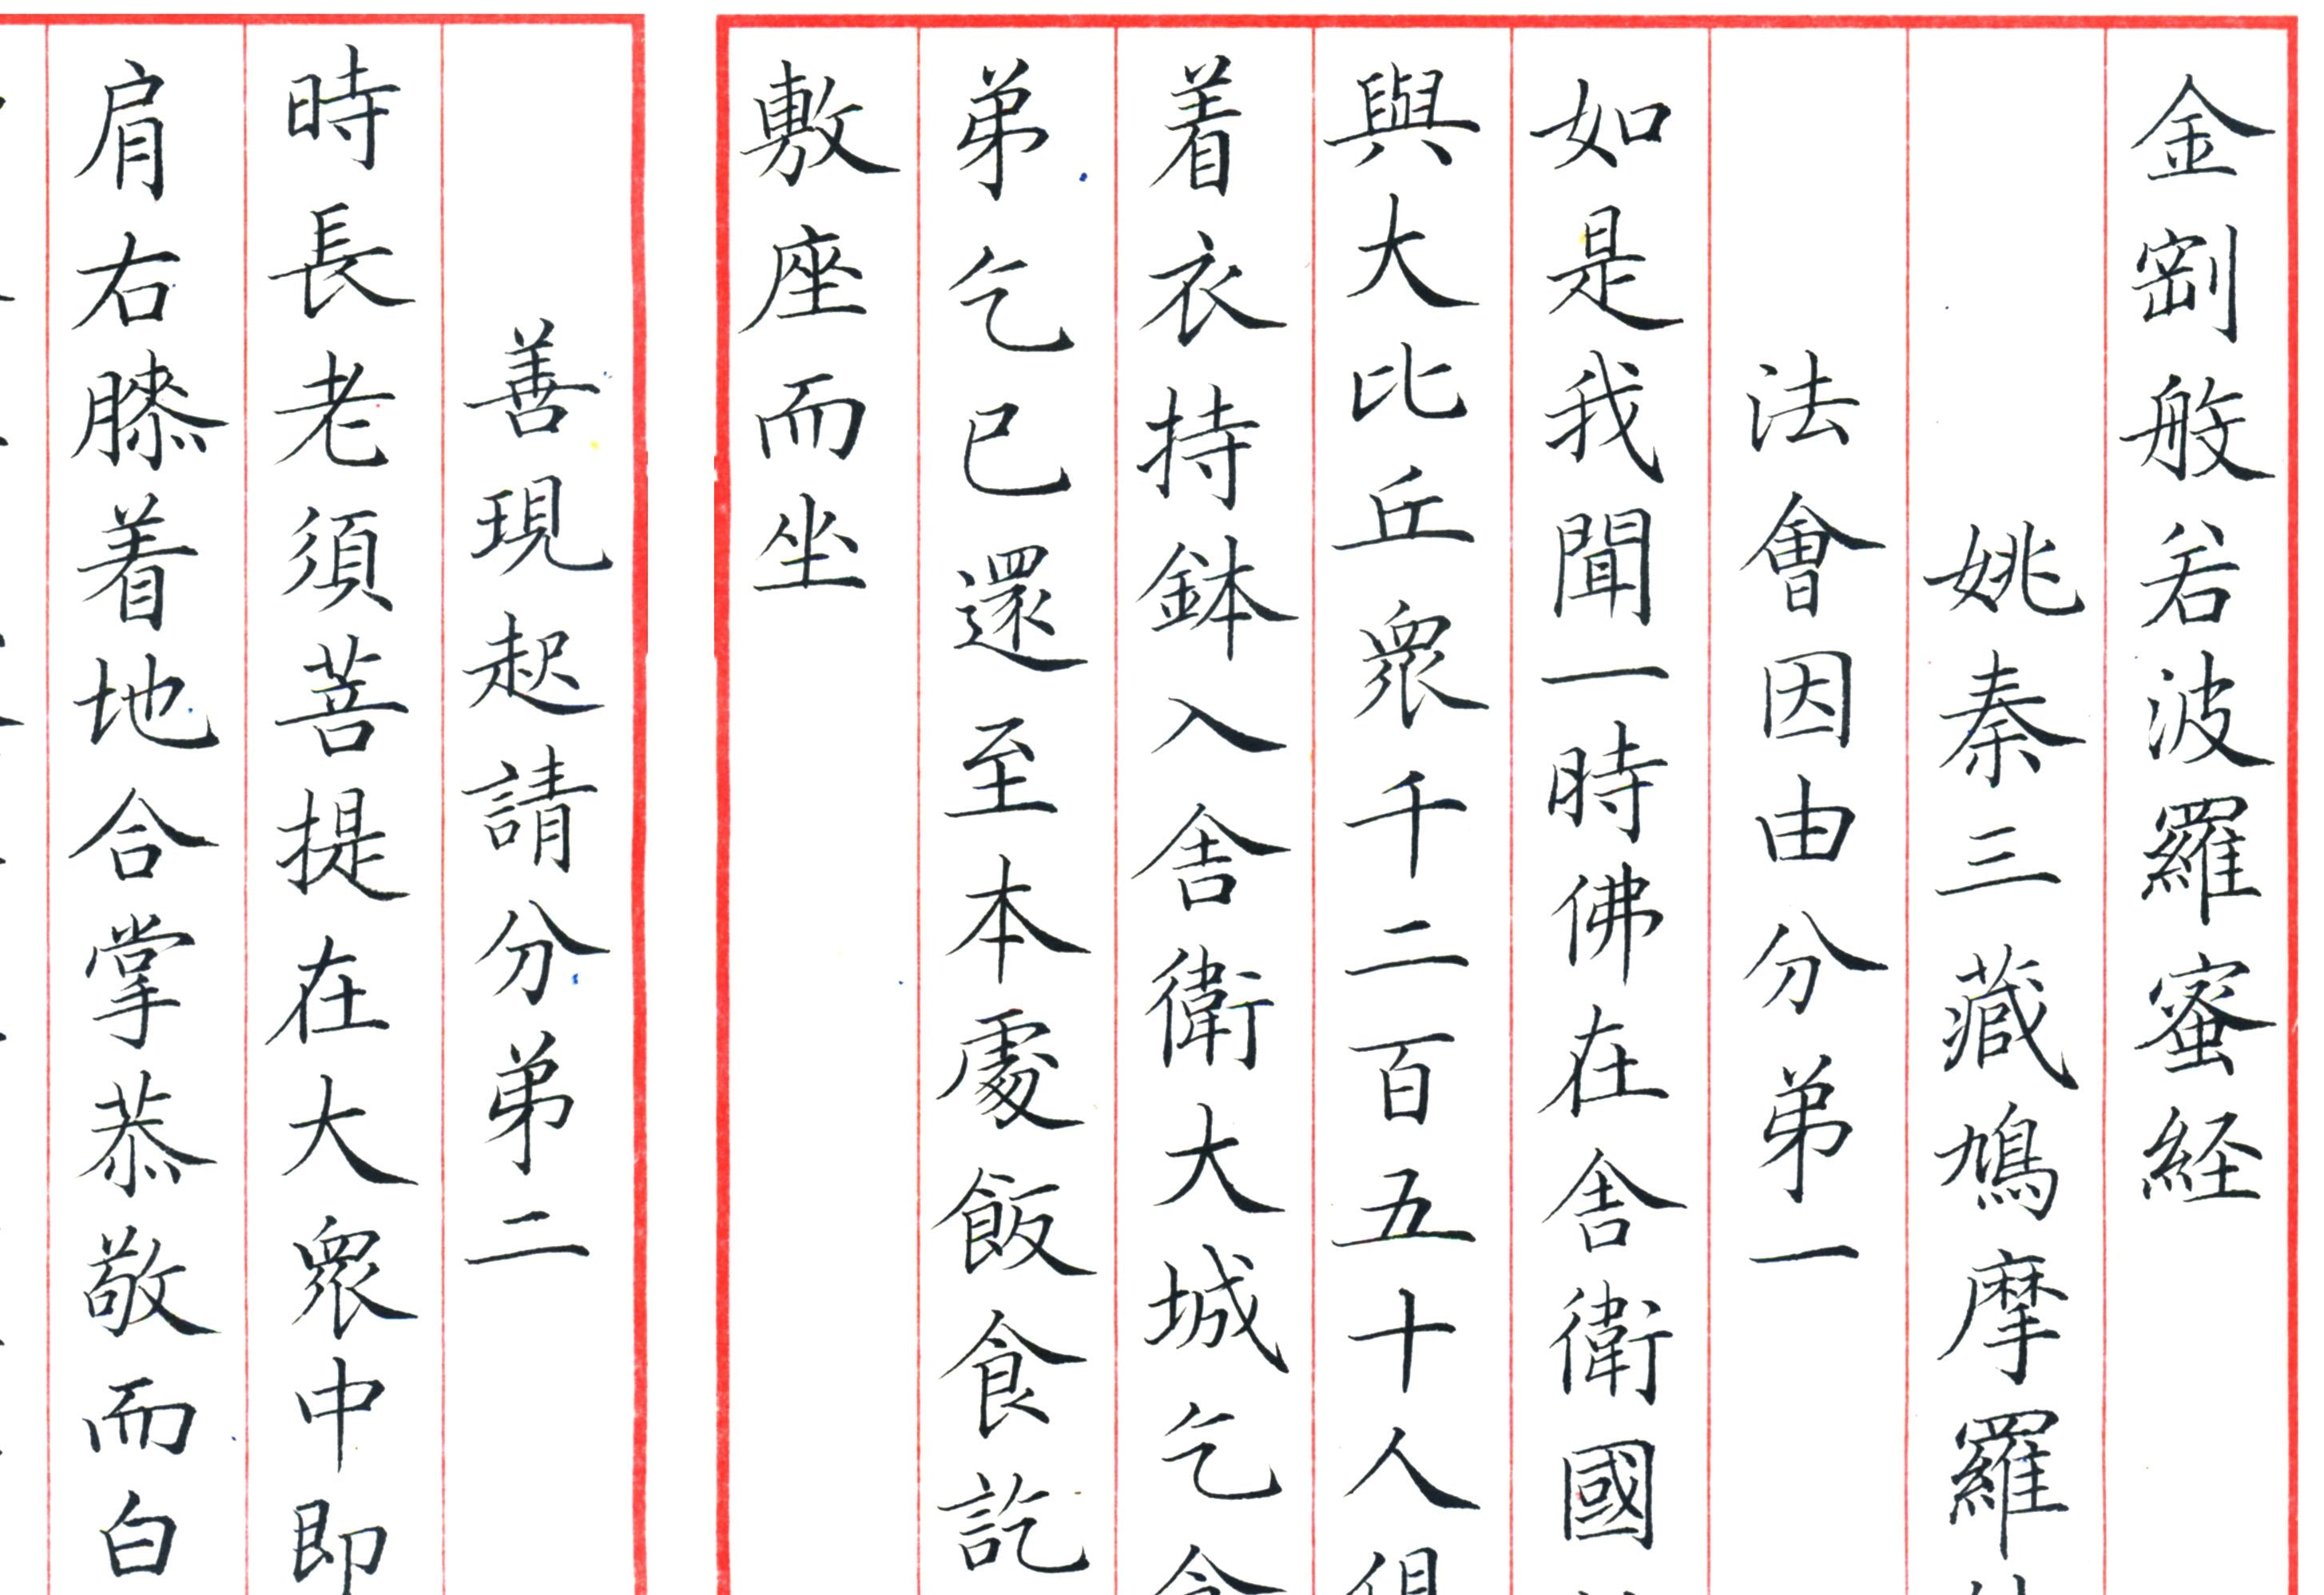 金剛般若波羅蜜経
姚秦三藏鳩摩羅
法會因由分弟一
如是我聞一時佛在舎衛國
與大比丘衆二千二百五十人俱
着衣持鉢入舎衛大城乞食
弟乞已還至本處飯食訖
敷座而坐
善現起請分弟二
時長老須菩提在大衆中即
肩右膝着地合掌恭敬而白